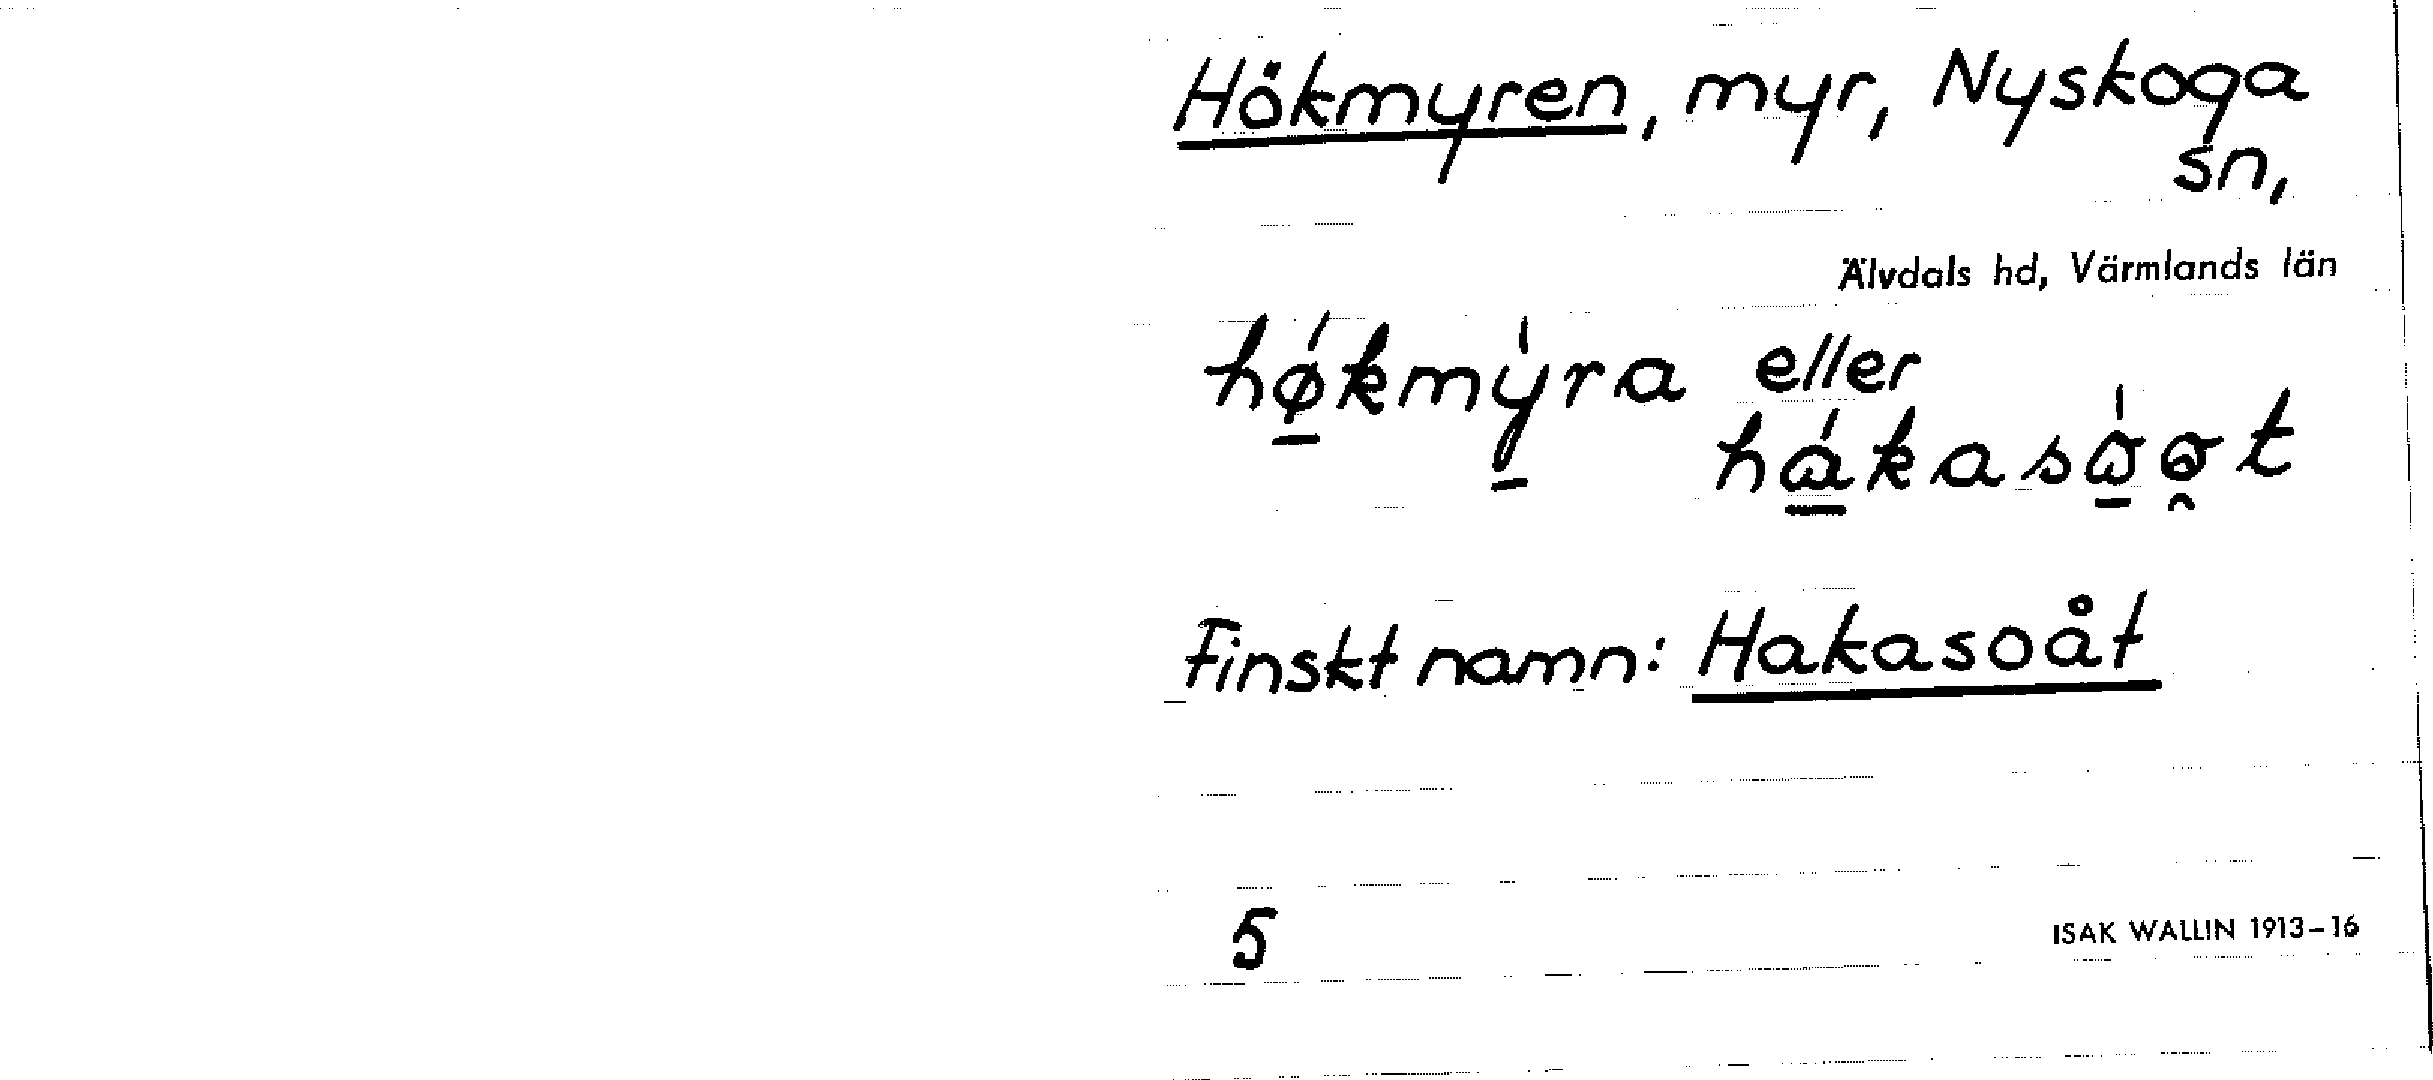 Hökmyren, myr, Nyskoga
sn,
Älvdals hd, Värmlands län
hǿ̱kmy̱̍ra eller
há̱kasɷ̱̍ɷ̯t
Finskt namn: Hakasoåt
5
ISAK WALLIN 1913-16